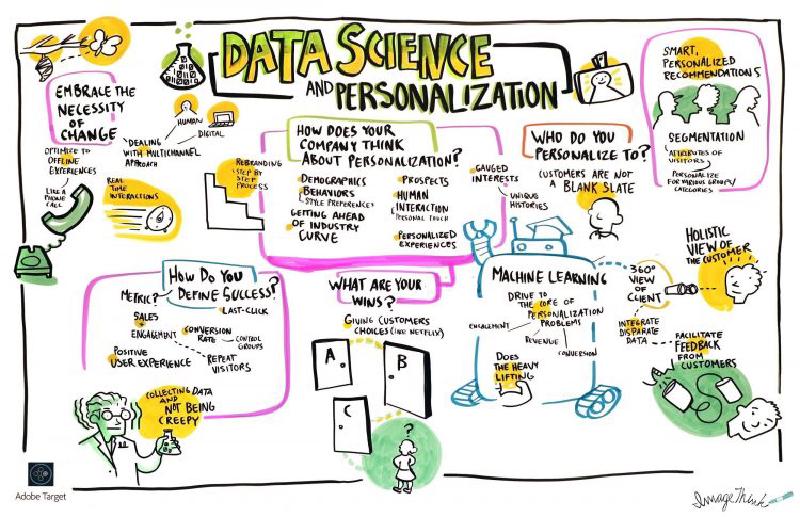 DATA SCIENCE
AND PERSONALIZATION
EMBRACE THE
NECESSITY
OF
CHANGE
HUMAN
DIGITAL
DEALING
WITH MULTICHANNEL
APPROACH
OFFLINE
EXPERIENCES
LIKE A
PHONE
CALL
REAL
TIME
INTERACTIONS
REBRANDING
STEP BY
STEP
PROCESS
HOW DOES YOUR
COMPANY THINK
ABOUT PERSONALIZATION?
DEMOGRAPHICS
BEHAVIORS
STYLE PREFERENCES
GETTING AHEAD
OF INDUSTRY
CURVE
PROSPECTS
HUMAN
INTERACTION
PERSONAL TOUCH
PERSONALIZED
EXPERIENCES
GAUGED
INTERESTS
UNIQUE
HISTORIES
WHO DO YOU
PERSONALIZE TO?
CUSTOMERS ARE NOT
A BLANK SLATE
SMART,
PERSONALIZED
RECOMMENDATIONS
SEGMENTATION
ATTRIBUTES OF
VISITORS
PERSONALIZE
FOR VARIOUS GROUPS/
CATEGORIES
HOW DO YOU
DEFINE SUCCESS?
METRIC?
LAST-CLICK
SALES
ENGAGEMENT
CONVERSION
RATE
CONTROL
GROUPS
POSITIVE
USER EXPERIENCE
REPEAT
VISITORS
COLLECTING DATA
AND
NOT BEING
CREEPY
WHAT ARE YOUR
WINS?
GIVING CUSTOMERS
CHOICES (LIKE NETFLIX)
A
B
C
?
MACHINE LEARNING
DRIVE TO
THE CORE OF
PERSONALIZATION
PROBLEMS
ENGAGEMENT
REVENUE
CONVERSION
DOES
THE HEAVY
LIFTING
360°
VIEW OF
CLIENT
INTEGRATE
DISPARATE
DATA
HOLISTIC
VIEW OF
THE CUSTOMER
FACILITATE
FEEDBACK
FROM
CUSTOMERS
Adobe Target
ImageThink